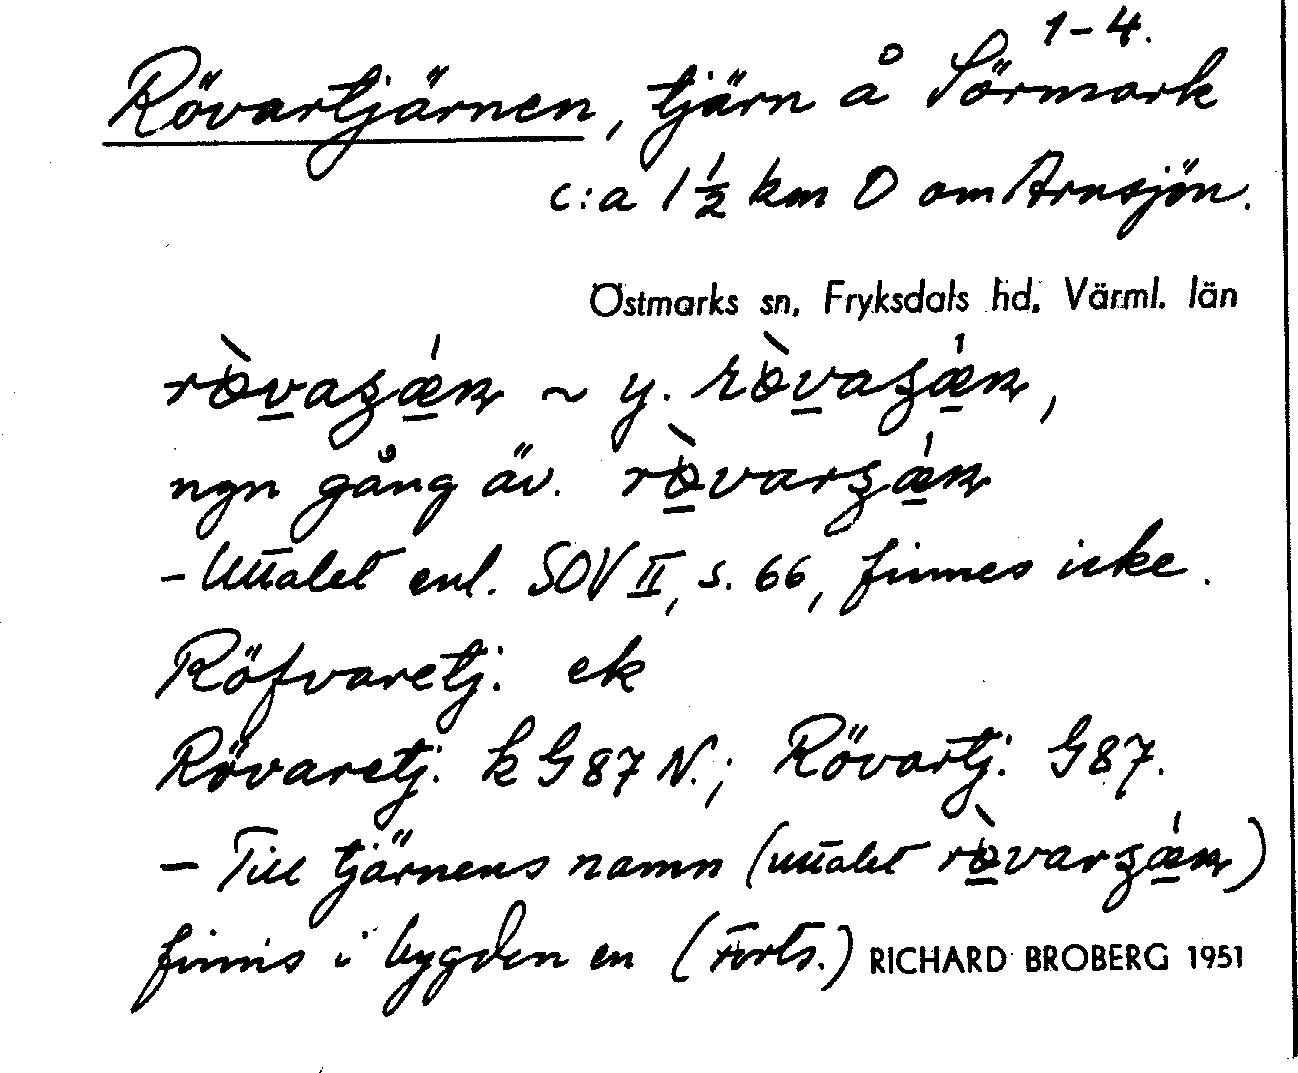 1-4.
Rövartjärnen, tjärn å Sörmark
c:a 1 ½ km O om Arnsjön.
Östmarks sn, Fryksdals hd. Värml. län
~ y.
ngn gång äv.
- Uttalet enl. SOV II, s. 66, finnes icke.
Röfvaretj. ek
Rövaretj. k G 87 N.; Rövartj. G 87.
- Till tjärnens namn (uttalet
finns i bygden en (Forts.) RICHARD BROBERG 1951